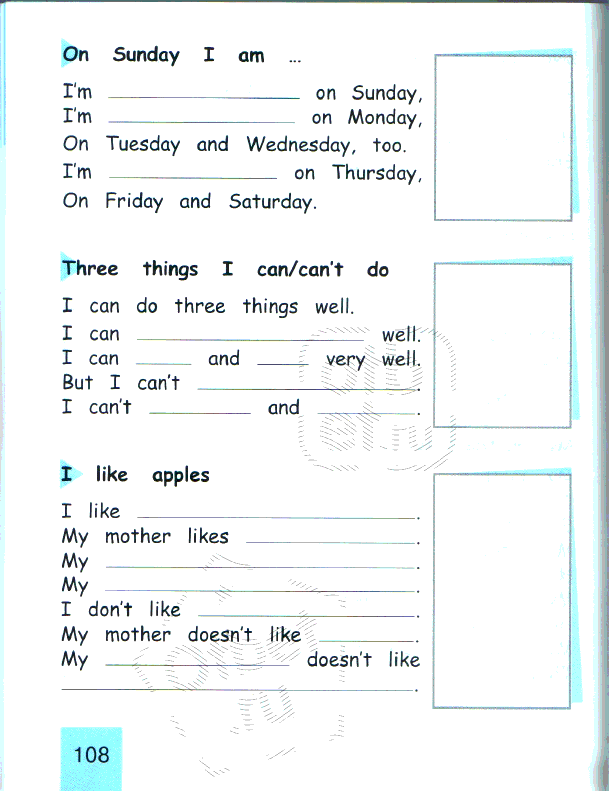 On Sunday I am ...
I'm ____________ on Sunday,
I'm ____________ on Monday,
On Tuesday and Wednesday, too.
I'm ____________ on Thursday,
On Friday and Saturday.
Three things I can/can't do
I can do three things well.
I can ____________ well.
I can ______ and ______ very well.
But I can't ____________.
I can't ________ and ________.
I like apples
I like ____________.
My mother likes ____________.
My ____________.
My ____________.
I don't like ____________.
My mother doesn't like ________.
My ____________ doesn't like
____________.
108